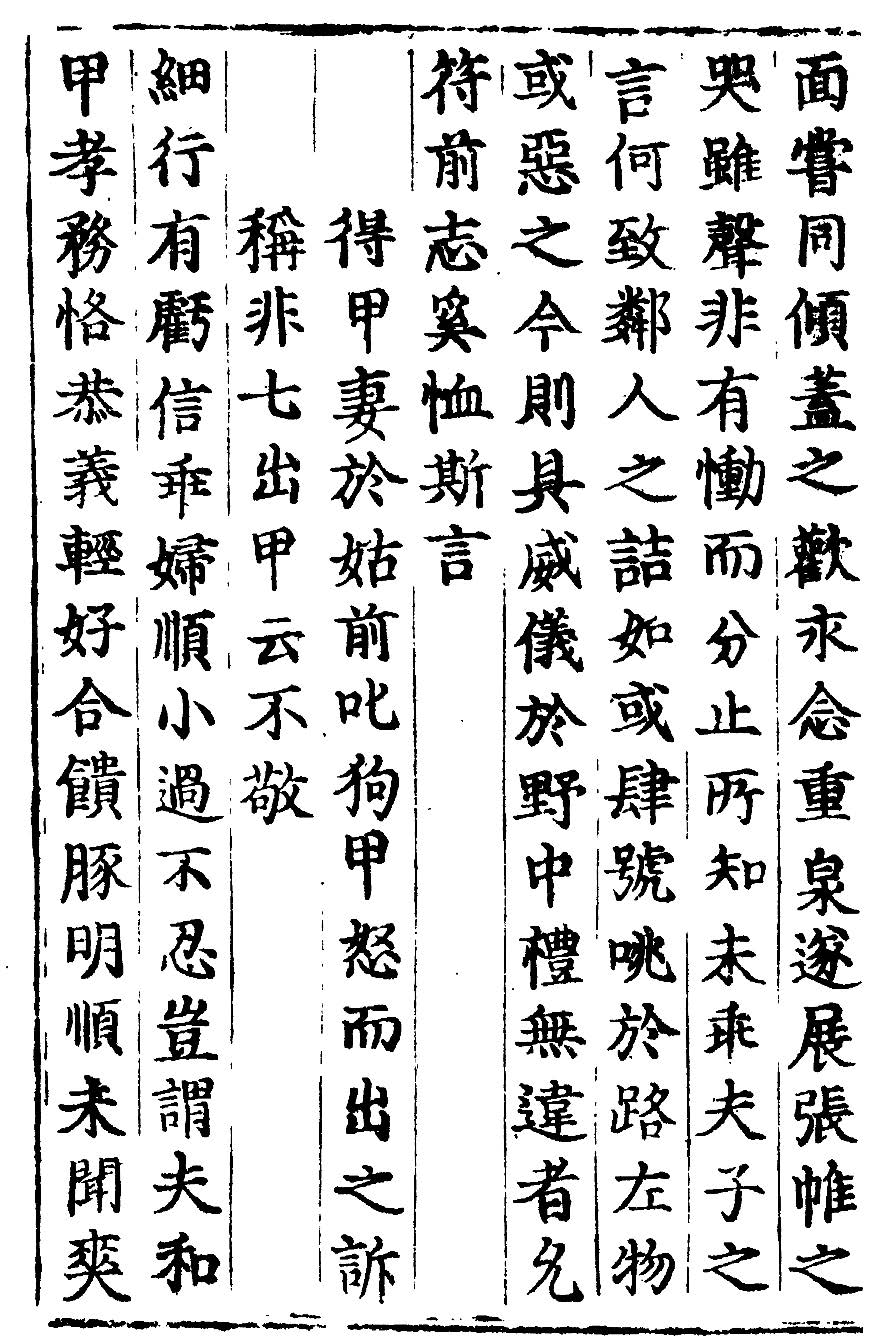 面嘗同傾蓋之歡永念重泉遂展張帷之
哭雖聲非有慟而分止所知未乖夫子之
言何致鄰人之詰如或肆號咷於路左物
或惡之今則具威儀於野中禮無違者允
符前志奚恤斯言
得甲妻於姑前叱狗甲怒而出之訴
稱非七出甲云不敬
細行有虧信乖婦順小過不忍豈謂夫和
甲孝務恪恭義輕好合饋豚明順未聞爽